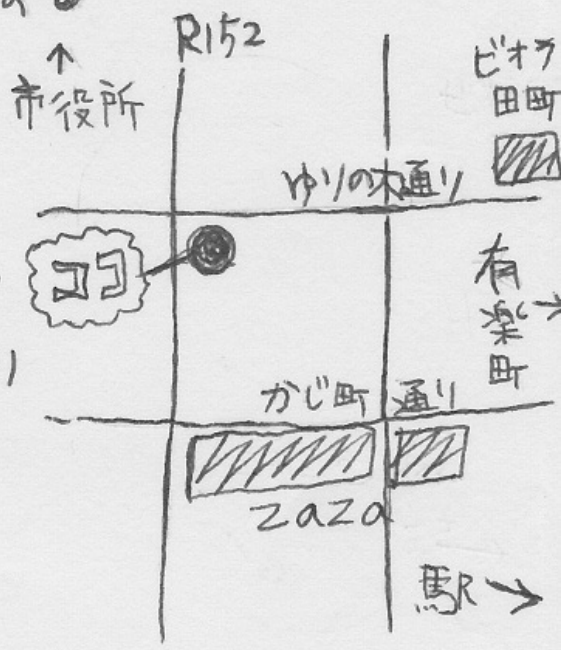 R152
↑
市役所
ビオラ
田町
ゆりの木通り
ココ
有
楽
町
→
かじ町通り
zaza
駅→